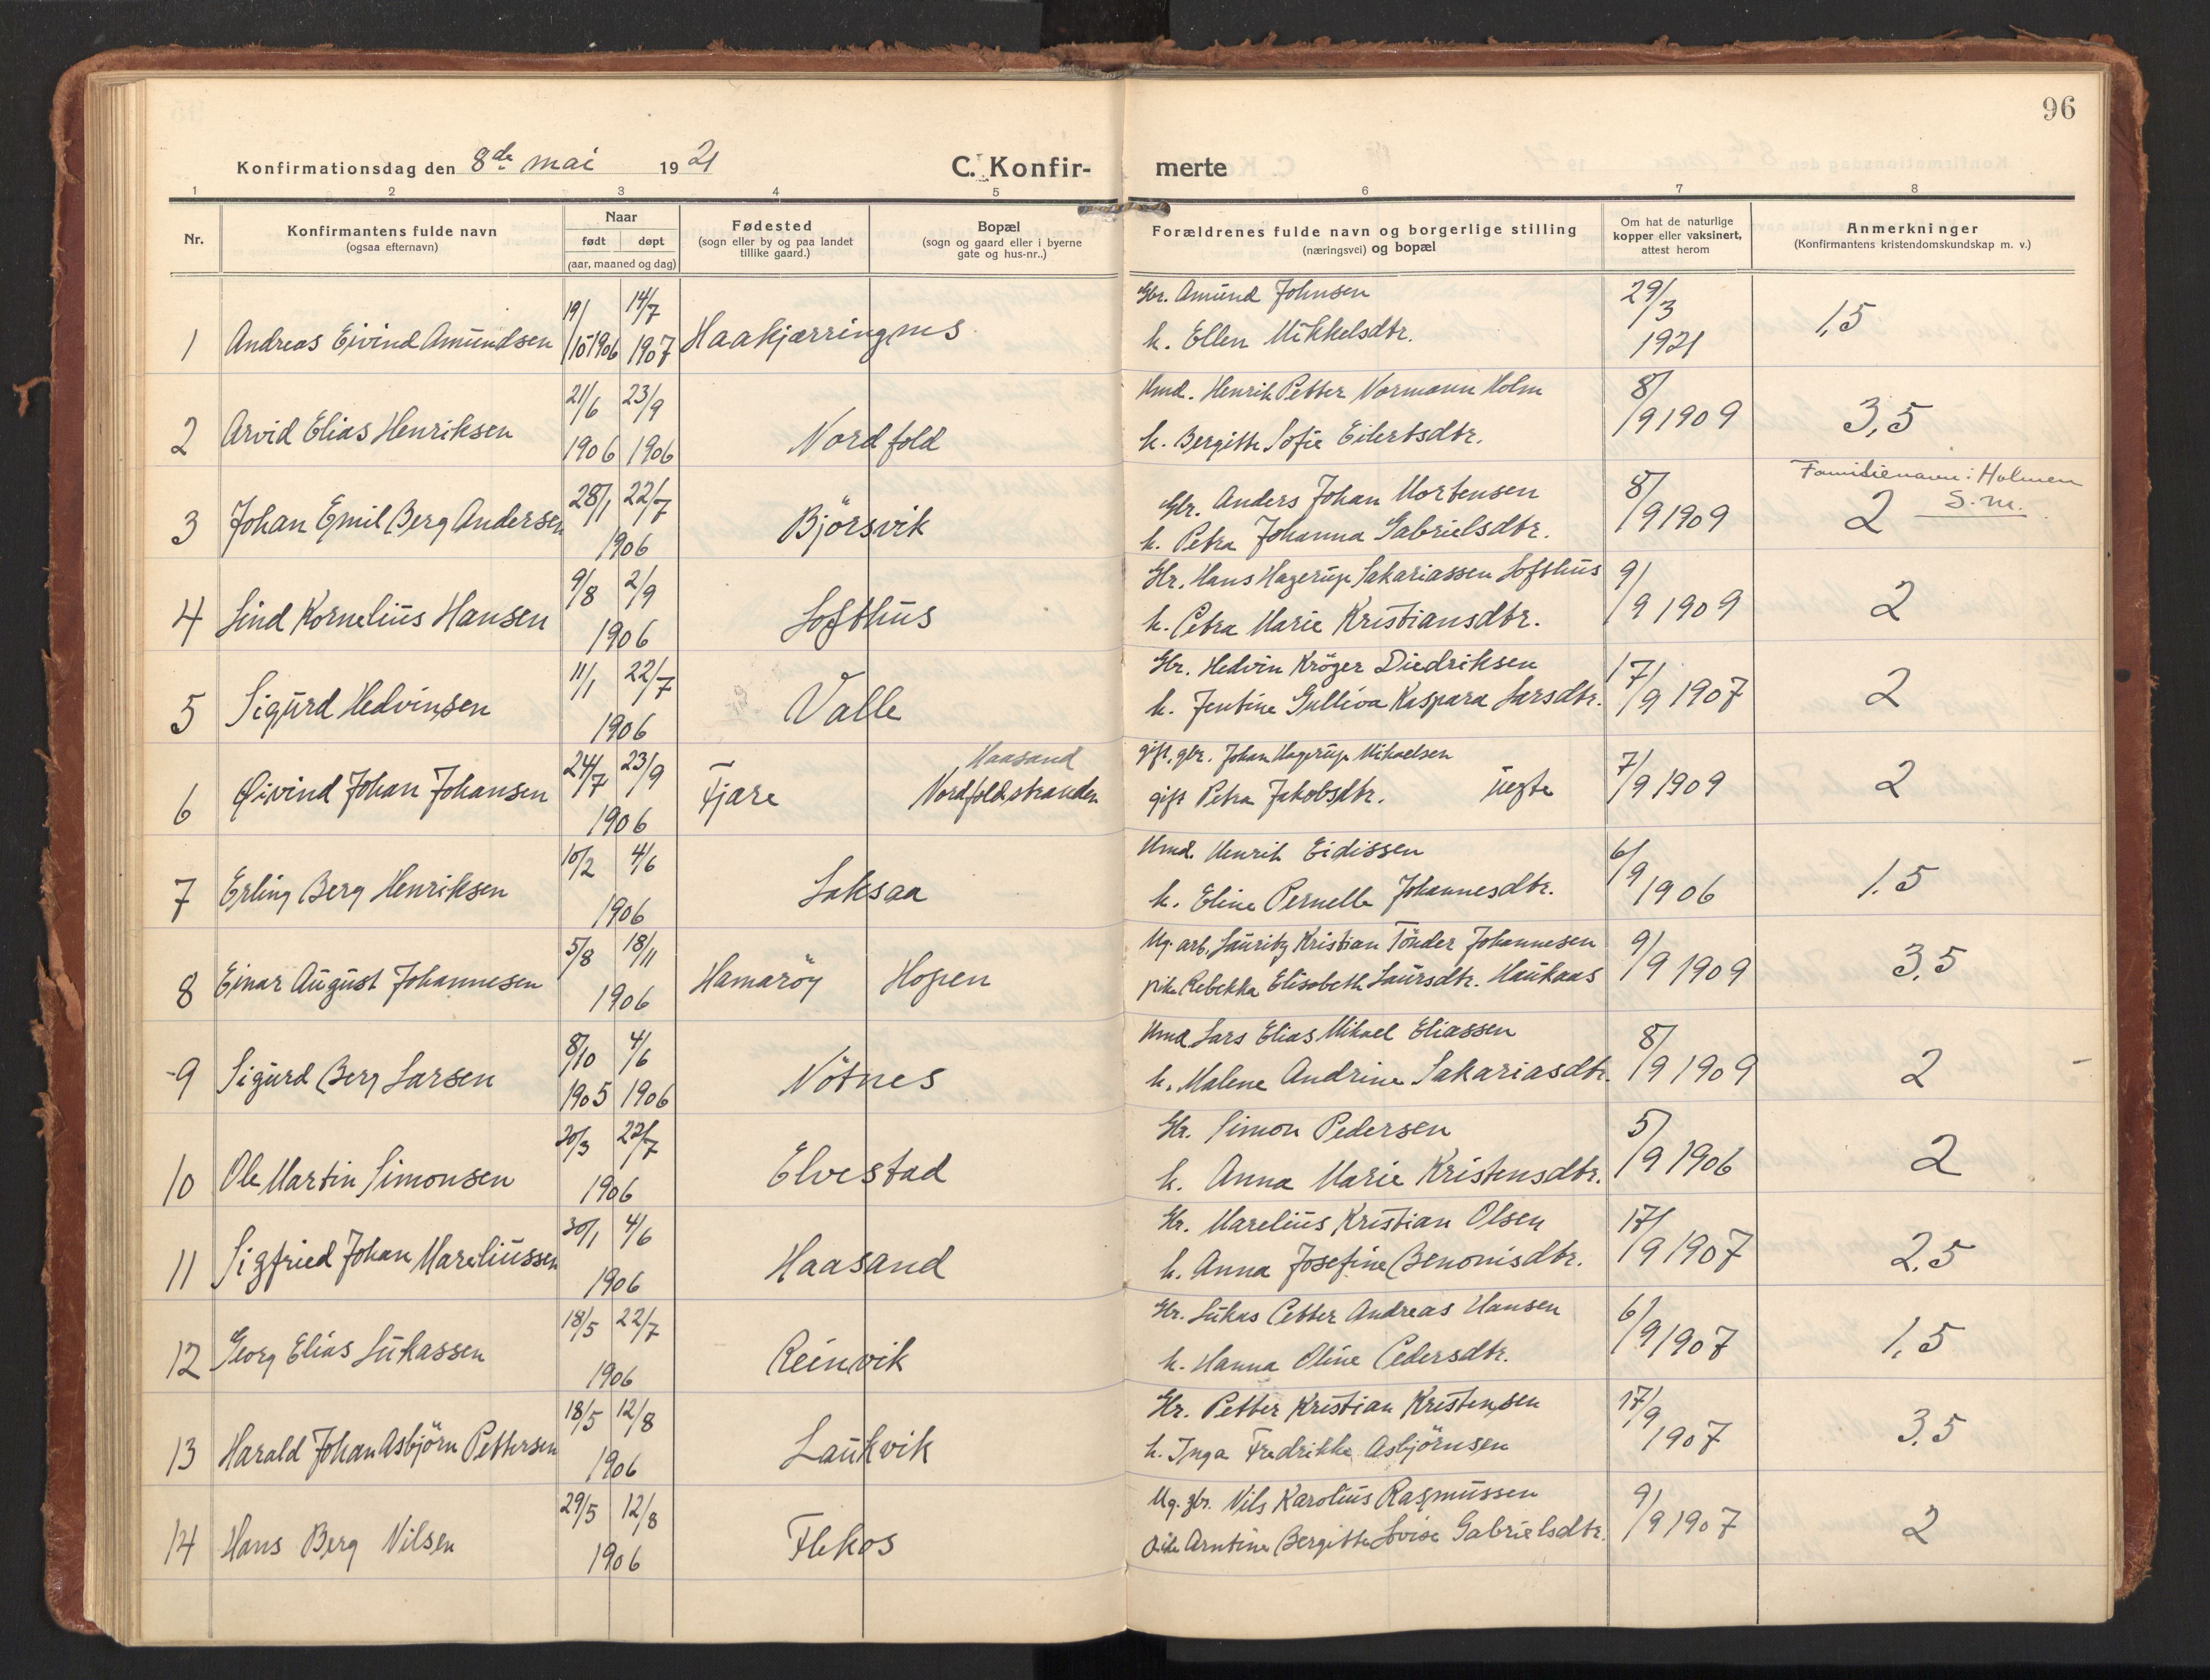 96
Konfirmationsdag den 8de mai 1921
C. Konfir- merte
1 2 3 4 5 6 7 8
Nr.
Konfirmantens fulde navn
(ogsaa efternavn)
Naar
født døpt
(aar, maaned og dag)
Fødested
(sogn eller by og paa landet
tillike gaard.)
Bopæl
(sogn og gaard eller i byerne
gate og hus-nr..)
Forældrenes fulde navn og borgerlige stilling
(næringsvei) og bopæl
Om hat de naturlige
kopper eller vaksinert,
attest herom
Anmerkninger
(Konfirmantens kristendomskundskap m. v.)
19/ 14/7 Gbr. Amund Johnsen 29/3
1 Andreas Eivind Amundsen /10 1906 1907 Haakjærringnes h. Ellen Mikkelsdtr. 1921 1,5
21/6 23/9 Hmd. Henrik Petter Normann Holm 8/
2 Arvid Elias Henriksen 1906 1906 Nordfold h. Bergitte Sofie Eilertsdtr. /9 1909 3,5
28/1 22/7 Gbr. Anders Johan Mortensen 8/ Familienavn: Holmen
3 Johan Emil Berg Andersen 1906 Björsvik h. Petra Johanna Gabrielsdtr. /9 1909 2 S.M.
9/8 2/9 Gbr. Hans Hagerup Sakariassen Lofthus 9/
4 Lind Kornelius Hansen 1906 Lofthus h. Petra Marie Kristiansdtr. /9 1909 2
11/1 22/7 Gbr. Hedvin Kröger Diedriksen 17/
5 Sigurd Hedvinsen 1906 Valle h. Jentine Gulliva Kaspara Larsdtr. /9 1907 2
24/7 23/9 Haasand gift. gbr. Johan Hagerup Mikaelsen 7/
6 Øivind Johan Johansen 1906 Fjære Nordfoldstranden gift Petra Jakobsdtr. uegte /9 1909 2
10/2 4/6 Hmd. Henrik Eidissen 6/9
7 Erling Berg Henriksen 1906 Laksaa h. Eline Pernelle Johannesdtr. 1906 1.5
5/8 18/11 Ug. arb. Lauritz Kristian Tönder Johannesen 9/
8 Einar August Johannesen 1906 Hamaröy Hopen pike Rebekka Elisabeth Laursdtr. Haukaas /9 1909 3,5
8/10 4/6 Hmd Lars Elias Mikael Eliassen 8/
9 Sigurd Berg Larsen 1905 1906 Nötnes h. Malene Andrine Sakariasdtr. /9 1909 2
20/3 22/7 Gbr. Simon Pedersen 5/
10 Ole Martin Simonsen 1906 Elvestad h. Anna Marie Kristensdtr. /9 1906 2
30/1 4/6 Gbr. Marelius Kristian Olsen 17/
11 Sigfried Johan Mareliussen 1906 Haasand h. Anna Josefine Benonisdtr. /9 1907 2,5
18/5 22/7 Gbr. Lukas Petter Andreas Hansen 6/
12 Georg Elias Lukassen 1906 Reinvik h. Hanna Oline Pedersdtr. /9 1907 1,5
18/5 12/8 Gbr. Petter Kristian Kristensen 17/9
13 Harald Johan Asbjörn Pettersen 1906 Laukvik h. Inga Fredrikke Asbjörnsen 1907 3,5
29/5 12/8 Ug. gbr. Nils Karolius Rasmussen 9/
14 Hans Berg Nilsen 1906 Flekos pike Arntine Bergitte Lovise Gabrielsdtr. /9 1907 2